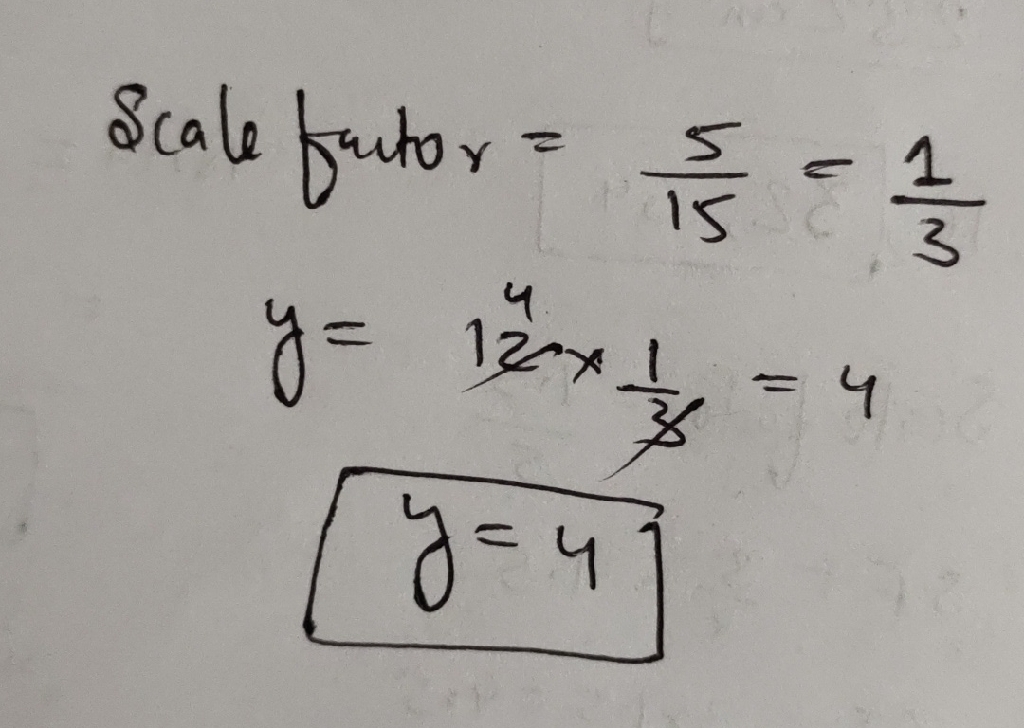 Scale factor = 5/15 = 1/3
y = 12 4 × 1/3 = 4
y = 4